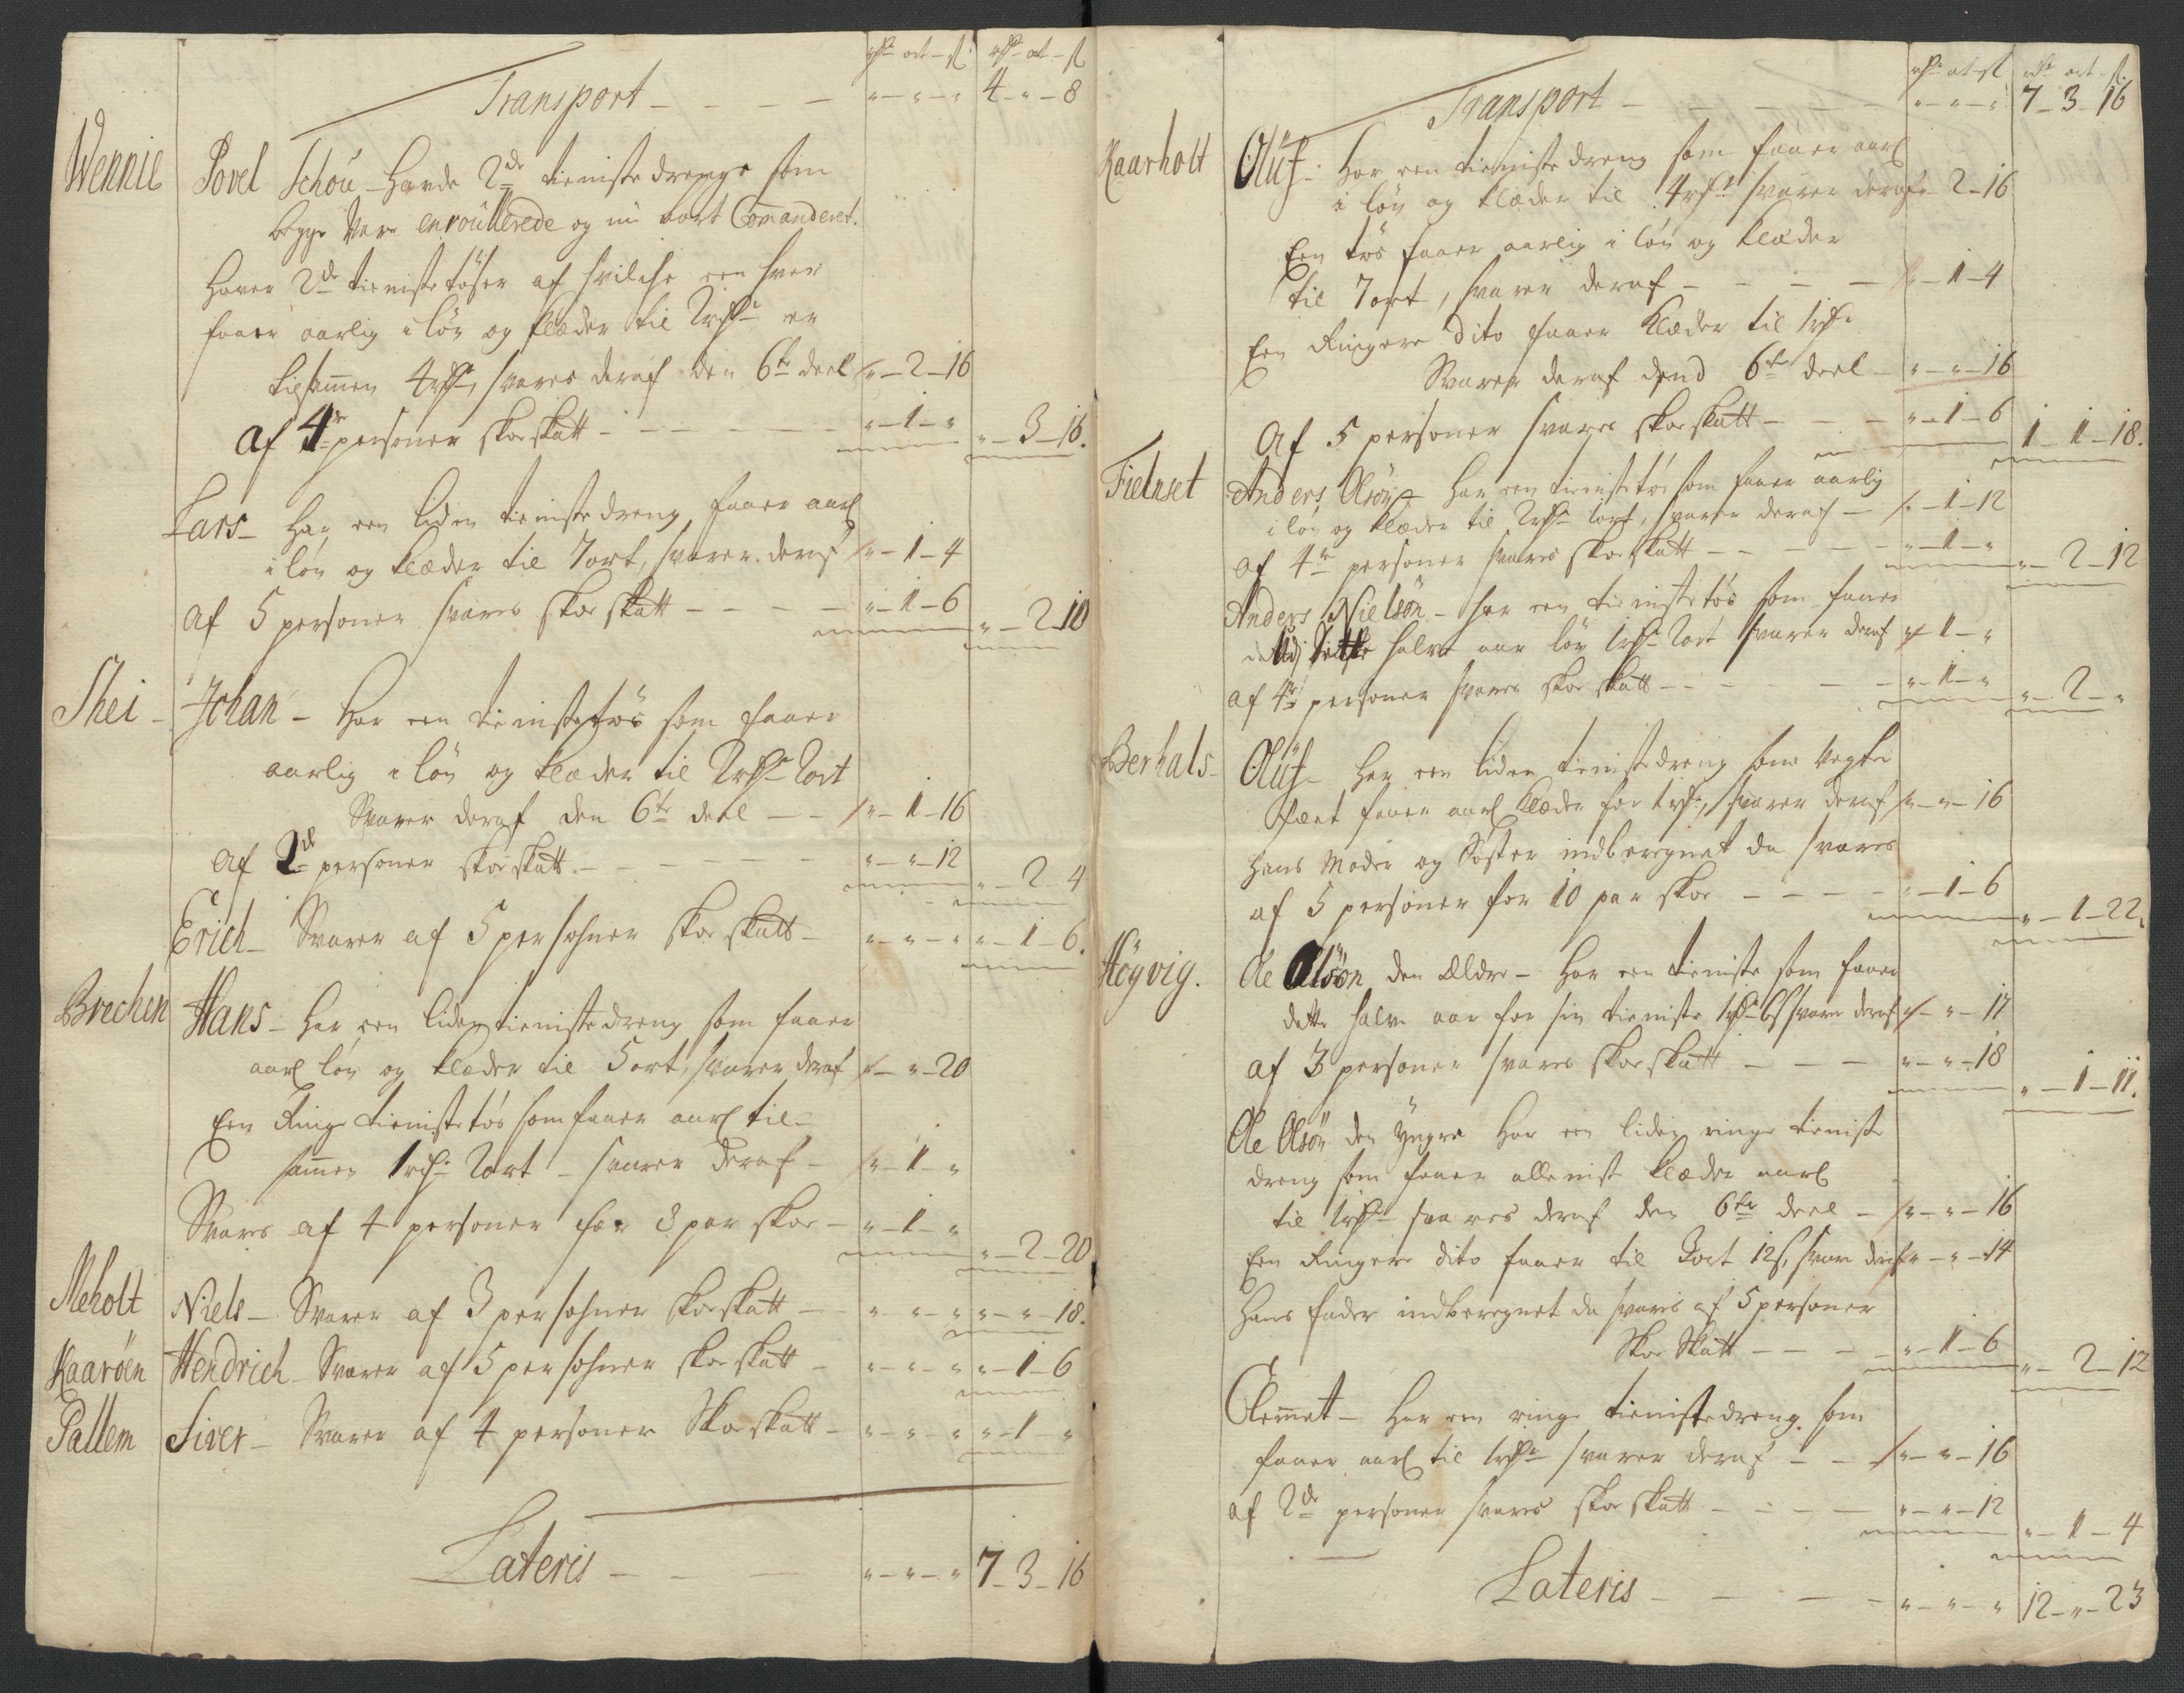 rdr ort ß rdr ort ß
Transport - - - - " - " - " 4 - " - 8
Wennie Povel Schou - Havde 2de tieniste drenge som
begge Vare enroullerede og nu bort Comanderet.
Haver 2de tieniste töser af hvilche een hver
faaer aarlig i løn og klæder til 2rdr er
tilsamen 4rdr, svares deraf den 6te deel " - 2 - 16
af 4re personer skoe skatt - - - - " - 1 - " " - 3 - 16.
Lars - Har een liden tieniste dreng, faaer aarl
i løn og klæder til 7 ort, svarer deraf " - 1 - 4
af 5 personer svares skoe skatt - - - " - 1 - 6 " - 2 - 10
Shei - Johan - Har een tieniste tös som faaer
aarlig i løn og klæder til 2rdr 2ort
Svarer deraf den 6te deel - - " - 1 - 16
af 2de personer skoe skatt - - - - " - " - 12 " - 2 - 4
Erich - Svarer af 5 persohner skoe skatt - " - " - " " - 1 - 6.
Brechen Hans - Har een liden tieniste dreng som faaer
aarl løn og klæder til 5 ort, svarer deraf " - " - 20
Een Ringe tieniste tös som faaer aarl til-
samen 1rdr 2ort - svarer deraf - " - 1 - "
Svares af 4 personer for 8 par skoe - " - 1 - " " - 2 - 20
Meholt Niels - Svarer af 3 persohner skoe skatt - " - " - " " - " - 18.
Kaaröen Hendrich - Svarer af 5 persohner skoe skatt - " - " - " " - 1 - 6
Pallem Siver - Svarer af 4 personer Skoe skatt - " - " - " " - 1 - "
Lateris - - - " - " - " 7 - 3 - 16
rdr ort ß rdr ort ß
Transport - - - - - " - " - " 7 - 3 - 16
Kaarholt Oluf - Har een tieniste dreng som faaer aarl
i løn og klæder til 4rdr svarer deraf " - 2 - 16
Een tös faaer aarlig i løn og klæder
til 7 ort, svarer deraf - - - - " - 1 - 4
Een Ringere dito faaer klæder til 1rdr
Svarer deraf dend 6te deel - " - " - 16
Af 5 personer svares skoe skatt - - - " - 1 - 6 1 - 1 - 18.
Fielnset Anders Olsön - Har een tieniste tös som faaer aarlig
i løn og klæder til 2rdr 1ort, svarer deraf - " - 1 - 12
af 4re personer svares skoe skatt - - - - - " - 1 - " " - 2 - 12
Anders Nielsön - har een tieniste tös som faaer
dette halve aar løn 1rdr 2ort svarer deraf " - 1 - "
af 4re personer svares skoe skatt - - - - - " - 1 - " " - 2 - "
Berhals - Oluf - Har een liden tieniste dreng som Vogter
faaer aarl klæder for 1rdr, svarer deraf " - " - 16
Hans Moder og Söster indberegnet da svares
af 5 personer for 10 par skoe - - - - " - 1 - 6 " - 1 - 22.
Högvig. Ole Olsön den Ældre - Har een tieniste som faaer
dette halve aar for sin tieniste 1rdr 6ß svarer deraf " - " - 17
af 3 personer svares skoe skatt - - - " - " - 18 " - 1 - 11.
Ole Olsön den Yngre Har een liden ringe tieniste
dreng som faaer allenist klæder aarl
til 1rdr svares deraf den 6te deel - " - " - 16
Een Ringere dito faaer til 3ort 12ß, svarer deraf " - " - 14
Hans fader indberegnet da svares af 5 personer
Skoe Skatt - - - - " - 1 - 6 " - 2 - 12
Clemet - Har een ringe tieniste dreng som
faaer aarl til 1rdr svarer deraf - - " - " - 16
af 2de personer svares skoe skatt - - - - " - " - 12 " - 1 - 4
Lateris - - - - " - " - " 12 - " - 23